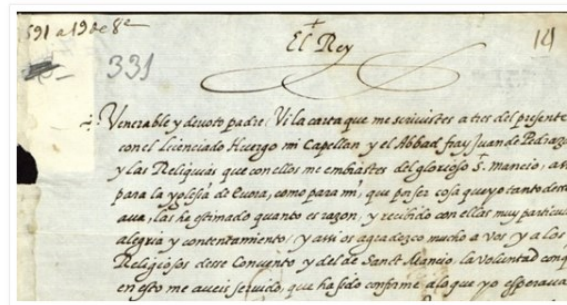 591 a 19 de 8e
El Rey
14
331
Venerable y devoto padre. Vi la carta que me scriuistes a tres del presente
con el licenciado Huergo mi Capellan y el Abbad fray Juan de Pedraza
y las Reliquias que con ellos me embiastes del glorioso S. Mancio, assi
para la yglesia de Euora, como para mi, que por ser cosa que yo tanto dese
aua, las he estimado quanto es razon, y recibido con ellas muy particular
alegria y contentamiento, y assi os agradezco mucho a vos y a los
Religiosos desse Conuento y del de Sanct Mancio la voluntad con q
en esto me aueis seruido, que ha sido conforme a lo que yo esperaua